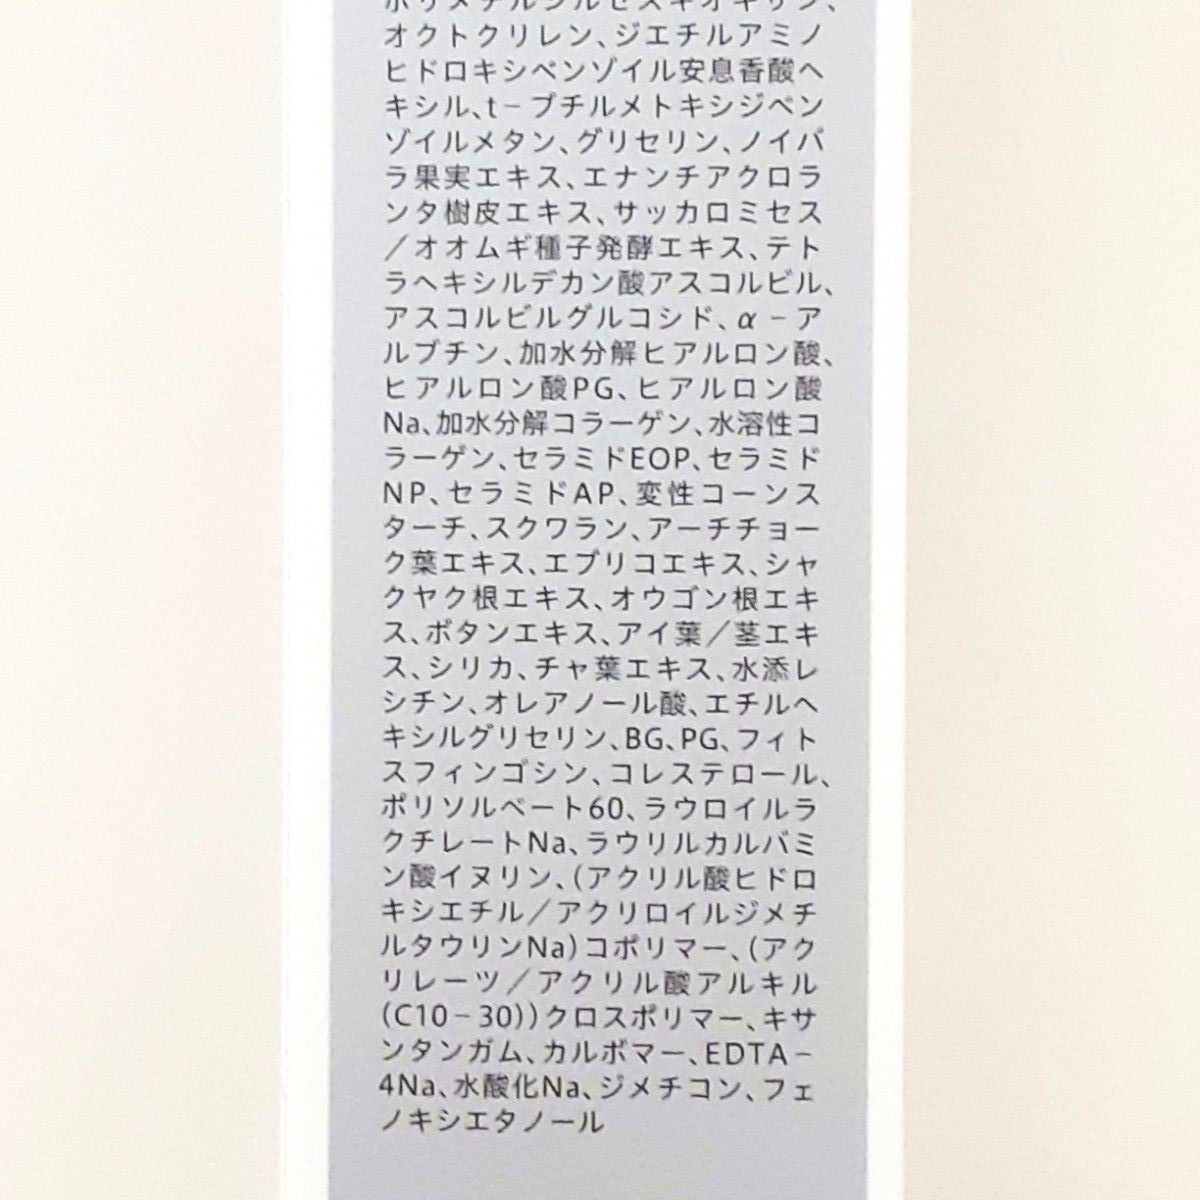 ポリメチルシルセスキオキサン、
オクトクリレン、ジエチルアミノ
ヒドロキシベンゾイル安息香酸ヘ
キシル、t－ブチルメトキシジベン
ゾイルメタン、グリセリン、ノイバ
ラ果実エキス、エナンチアクロラ
ンタ樹皮エキス、サッカロミセス
／オオムギ種子発酵エキス、テト
ラヘキシルデカン酸アスコルビル、
アスコルビルグルコシド、α－ア
ルブチン、加水分解ヒアルロン酸、
ヒアルロン酸PG、ヒアルロン酸
Na、加水分解コラーゲン、水溶性コ
ラーゲン、セラミドEOP、セラミド
NP、セラミドAP、変性コーンス
ターチ、スクワラン、アーチチョー
ク葉エキス、エブリコエキス、シャ
クヤク根エキス、オウゴン根エキ
ス、ボタンエキス、アイ葉／茎エキ
ス、シリカ、チャ葉エキス、水添レ
シチン、オレアノール酸、エチルヘ
キシルグリセリン、BG、PG、フィト
スフィンゴシン、コレステロール、
ポリソルベート60、ラウロイルラ
クチレートNa、ラウリルカルバミ
ン酸イヌリン、（アクリル酸ヒドロ
キシエチル／アクリロイルジメチ
ルタウリンNa）コポリマー、（アク
リレーツ／アクリル酸アルキル
（C10－30））クロスポリマー、キサ
ンタンガム、カルボマー、EDTA－
4Na、水酸化Na、ジメチコン、フェ
ノキシエタノール